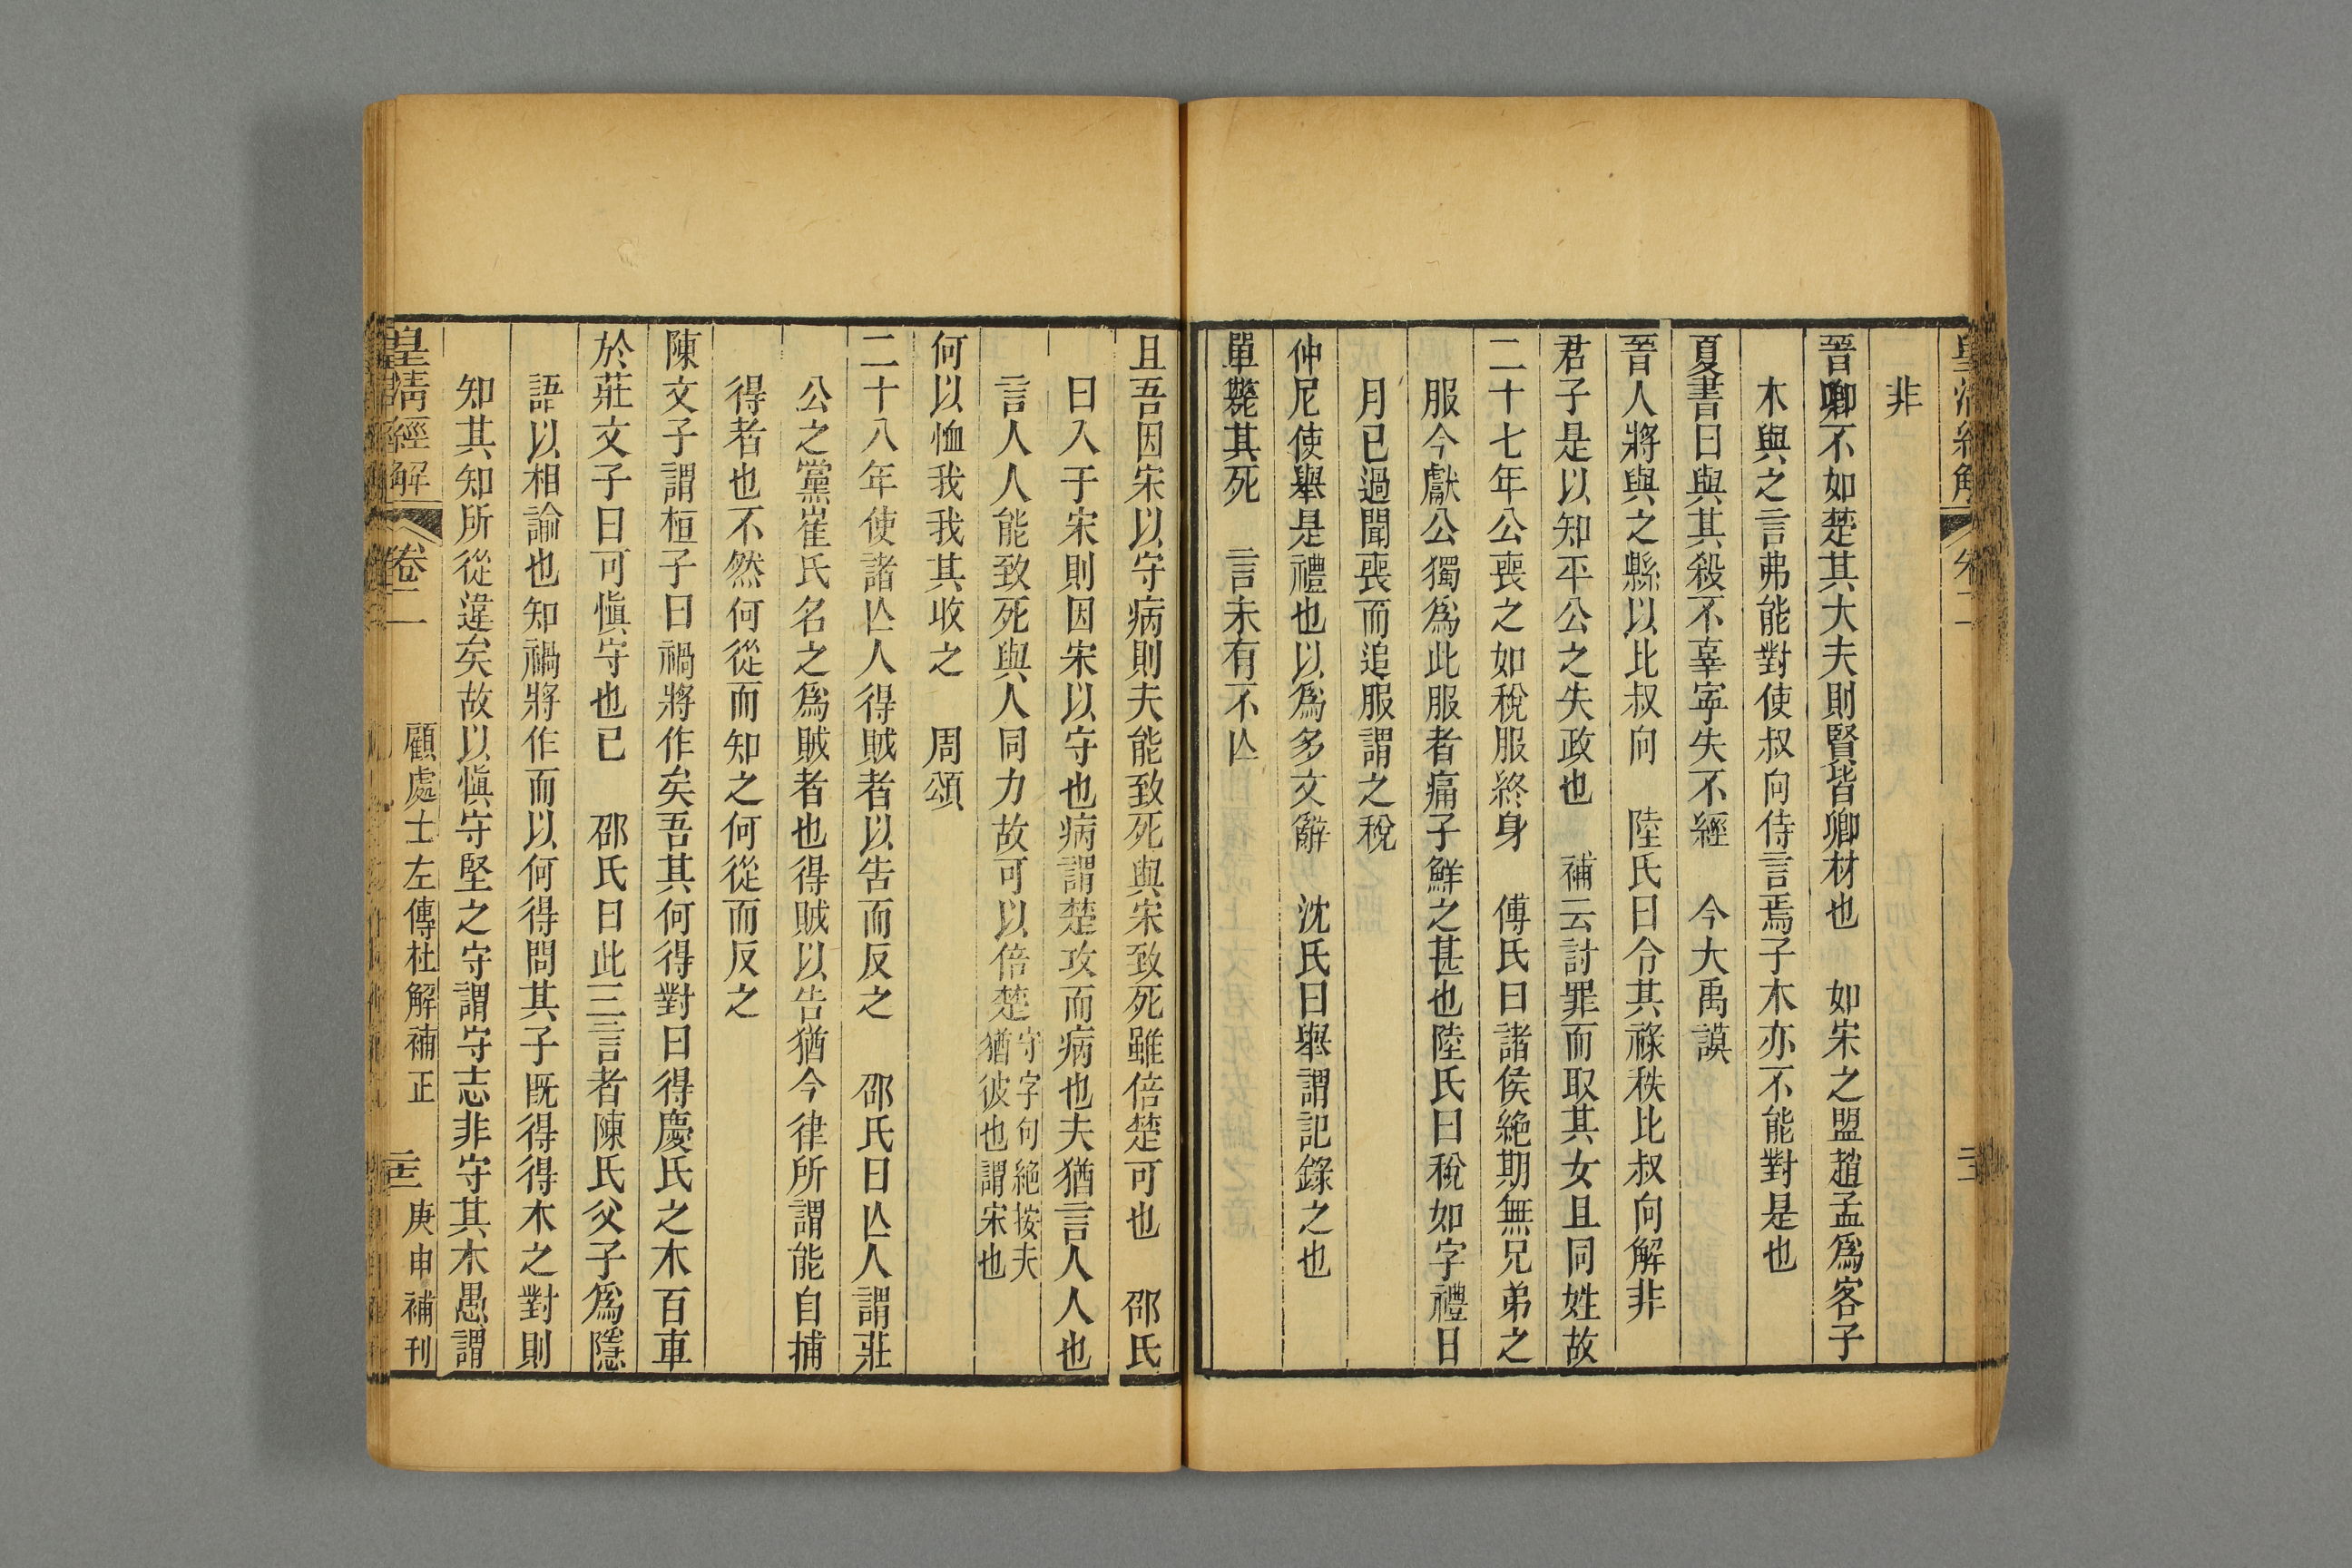 皇清經解 卷二
非
晉卿不如楚其大夫則賢皆卿材也 如宋之盟趙孟爲客子
木與之言弗能對使叔向侍言焉子木亦不能對是也
夏書曰與其殺不辜寧失不經 今大禹謨
晉人將與之縣以比叔向 陸氏曰令其祿秩比叔向解非
君子是以知平公之失政也 補云討罪而取其女且同姓故
二十七年公喪之如稅服終身 傅氏曰諸侯絶期無兄弟之
服今獻公獨爲此服者痛子鮮之甚也陸氏曰稅如字禮日
月已過聞喪而追服謂之稅
仲尼使舉是禮也以爲多文辭 沈氏曰舉謂記錄之也
單斃其死 言未有不亾
且吾因宋以守病則夫能致死與宋致死雖倍楚可也 邵氏
曰入于宋則因宋以守也病謂楚攻而病也夫猶言人人也
言人人能致死與人同力故可以倍楚守字句絶按夫猶彼也謂宋也
何以恤我我其收之 周頌
二十八年使諸亾人得賊者以告而反之 邵氏曰亾人謂莊
公之黨崔氏名之爲賊者也得賊以告猶今律所謂能自捕
得者也不然何從而知之何從而反之
陳文子謂桓子曰禍將作矣吾其何得對曰得慶氏之木百車
於莊文子曰可愼守也已 邵氏曰此三言者陳氏父子爲隱
語以相諭也知禍將作而以何得問其子旣得得木之對則
知其知所從違矣故以愼守堅之守謂守志非守其木愚謂
皇清經解 卷二 顧處士左傳杜解補正 庚申補刊